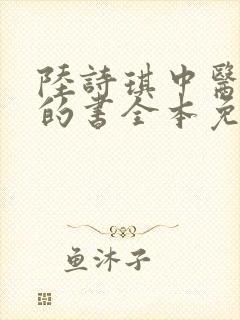 陸詩琪中醫
的書全本免
鱼沐子